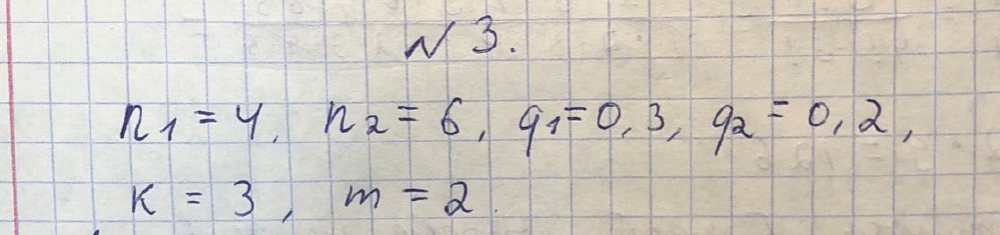 № 3.
n₁ = 4, n₂ = 6, q₁ = 0,3, q₂ = 0,2,
к = 3, m = 2.